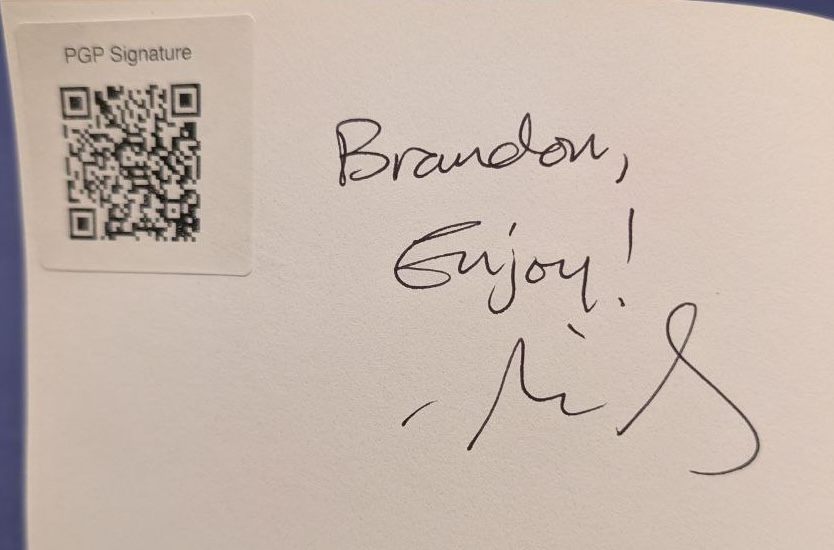 PGP Signature
Brandon,
Enjoy!